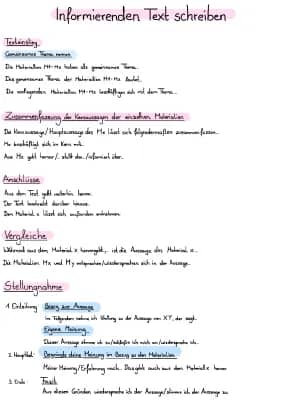 Informierenden Text schreiben
Texteinstieg
Gemeinsames Thema nennen
Die Materialien M1-Mx haben als gemeinsames Thema...
Das gemeinsame Thema der Materialien M1-Mx lautet...
Die vorliegenden Materialien M1-Mx beschäftigen sich mit dem Thema...
Zusammenfassung der Kernaussagen der einzelnen Materialien
Die Kernaussage/Hauptaussage des Mx lässt sich folgendermaßen zusammenfassen...
Mx beschäftigt sich im Kern mit...
Aus Mx geht hervor/.. stellt dar../informiert über..
Anschlüsse
Aus dem Text geht weiterhin hervor.
Der Text beschreibt darüber hinaus.
Dem Material x lässt sich außerdem entnehmen.
Vergleiche
Während aus dem Material x hervorgeht,.. ist die Aussage des Material x..
Die Materialien Mx und My entsprechen/wiedersprechen sich in der Aussage..
Stellungnahme
1. Einleitung: Bezug zur Aussage
Im Folgenden nehme ich Stellung zu der Aussage von XY, der sagt..
Eigene Meinung
Dieser Aussage stimme ich zu/schließe ich mich an/wiederspreche ich.
2. Hauptteil: Begründe deine Meinung im Bezug zu den Materialien
Meiner Meinung/Erfahrung nach.. Dies geht auch aus dem Material x hervor
3. Ende: Fazit
Aus diesen Gründen wiederspreche ich der Aussage/stimme ich der Aussage zu